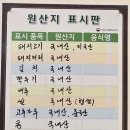 원산지 표시판
표시 품목 원산지 음식명
돼지고기 국내산, 미국산
돼지머리 국내산
김치 국내산
깍두기 국내산
배추 국내산
쌀 국내산
고추가루 국내산, 중국산
콩 국내산